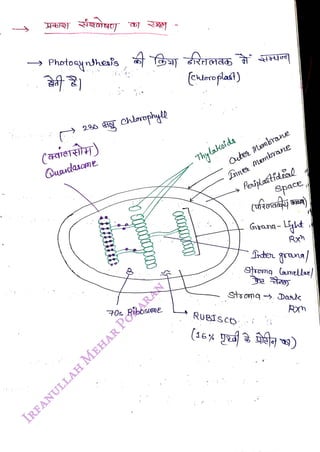 → प्रकाश संश्लेषण का स्थल -
→ Photosynthesis की क्रिया हरितलवक में सम्पन्न
(Chloroplast)
होती है।
→ 230 अणु Chlorophyll
(क्वांटासोम)
Quantasome
Thylakoids
Outer Membrane
Inner membrane
Periplastidial
Space
Grana - Light
Rxn
Inter grana/
Stroma Lamellae/
Stroma → Dark
Rxn
70s Ribosome
RUBISCO
(16% पृथ्वी के प्रोटीन का)
IRFANULLAH MEHAR POKARAN